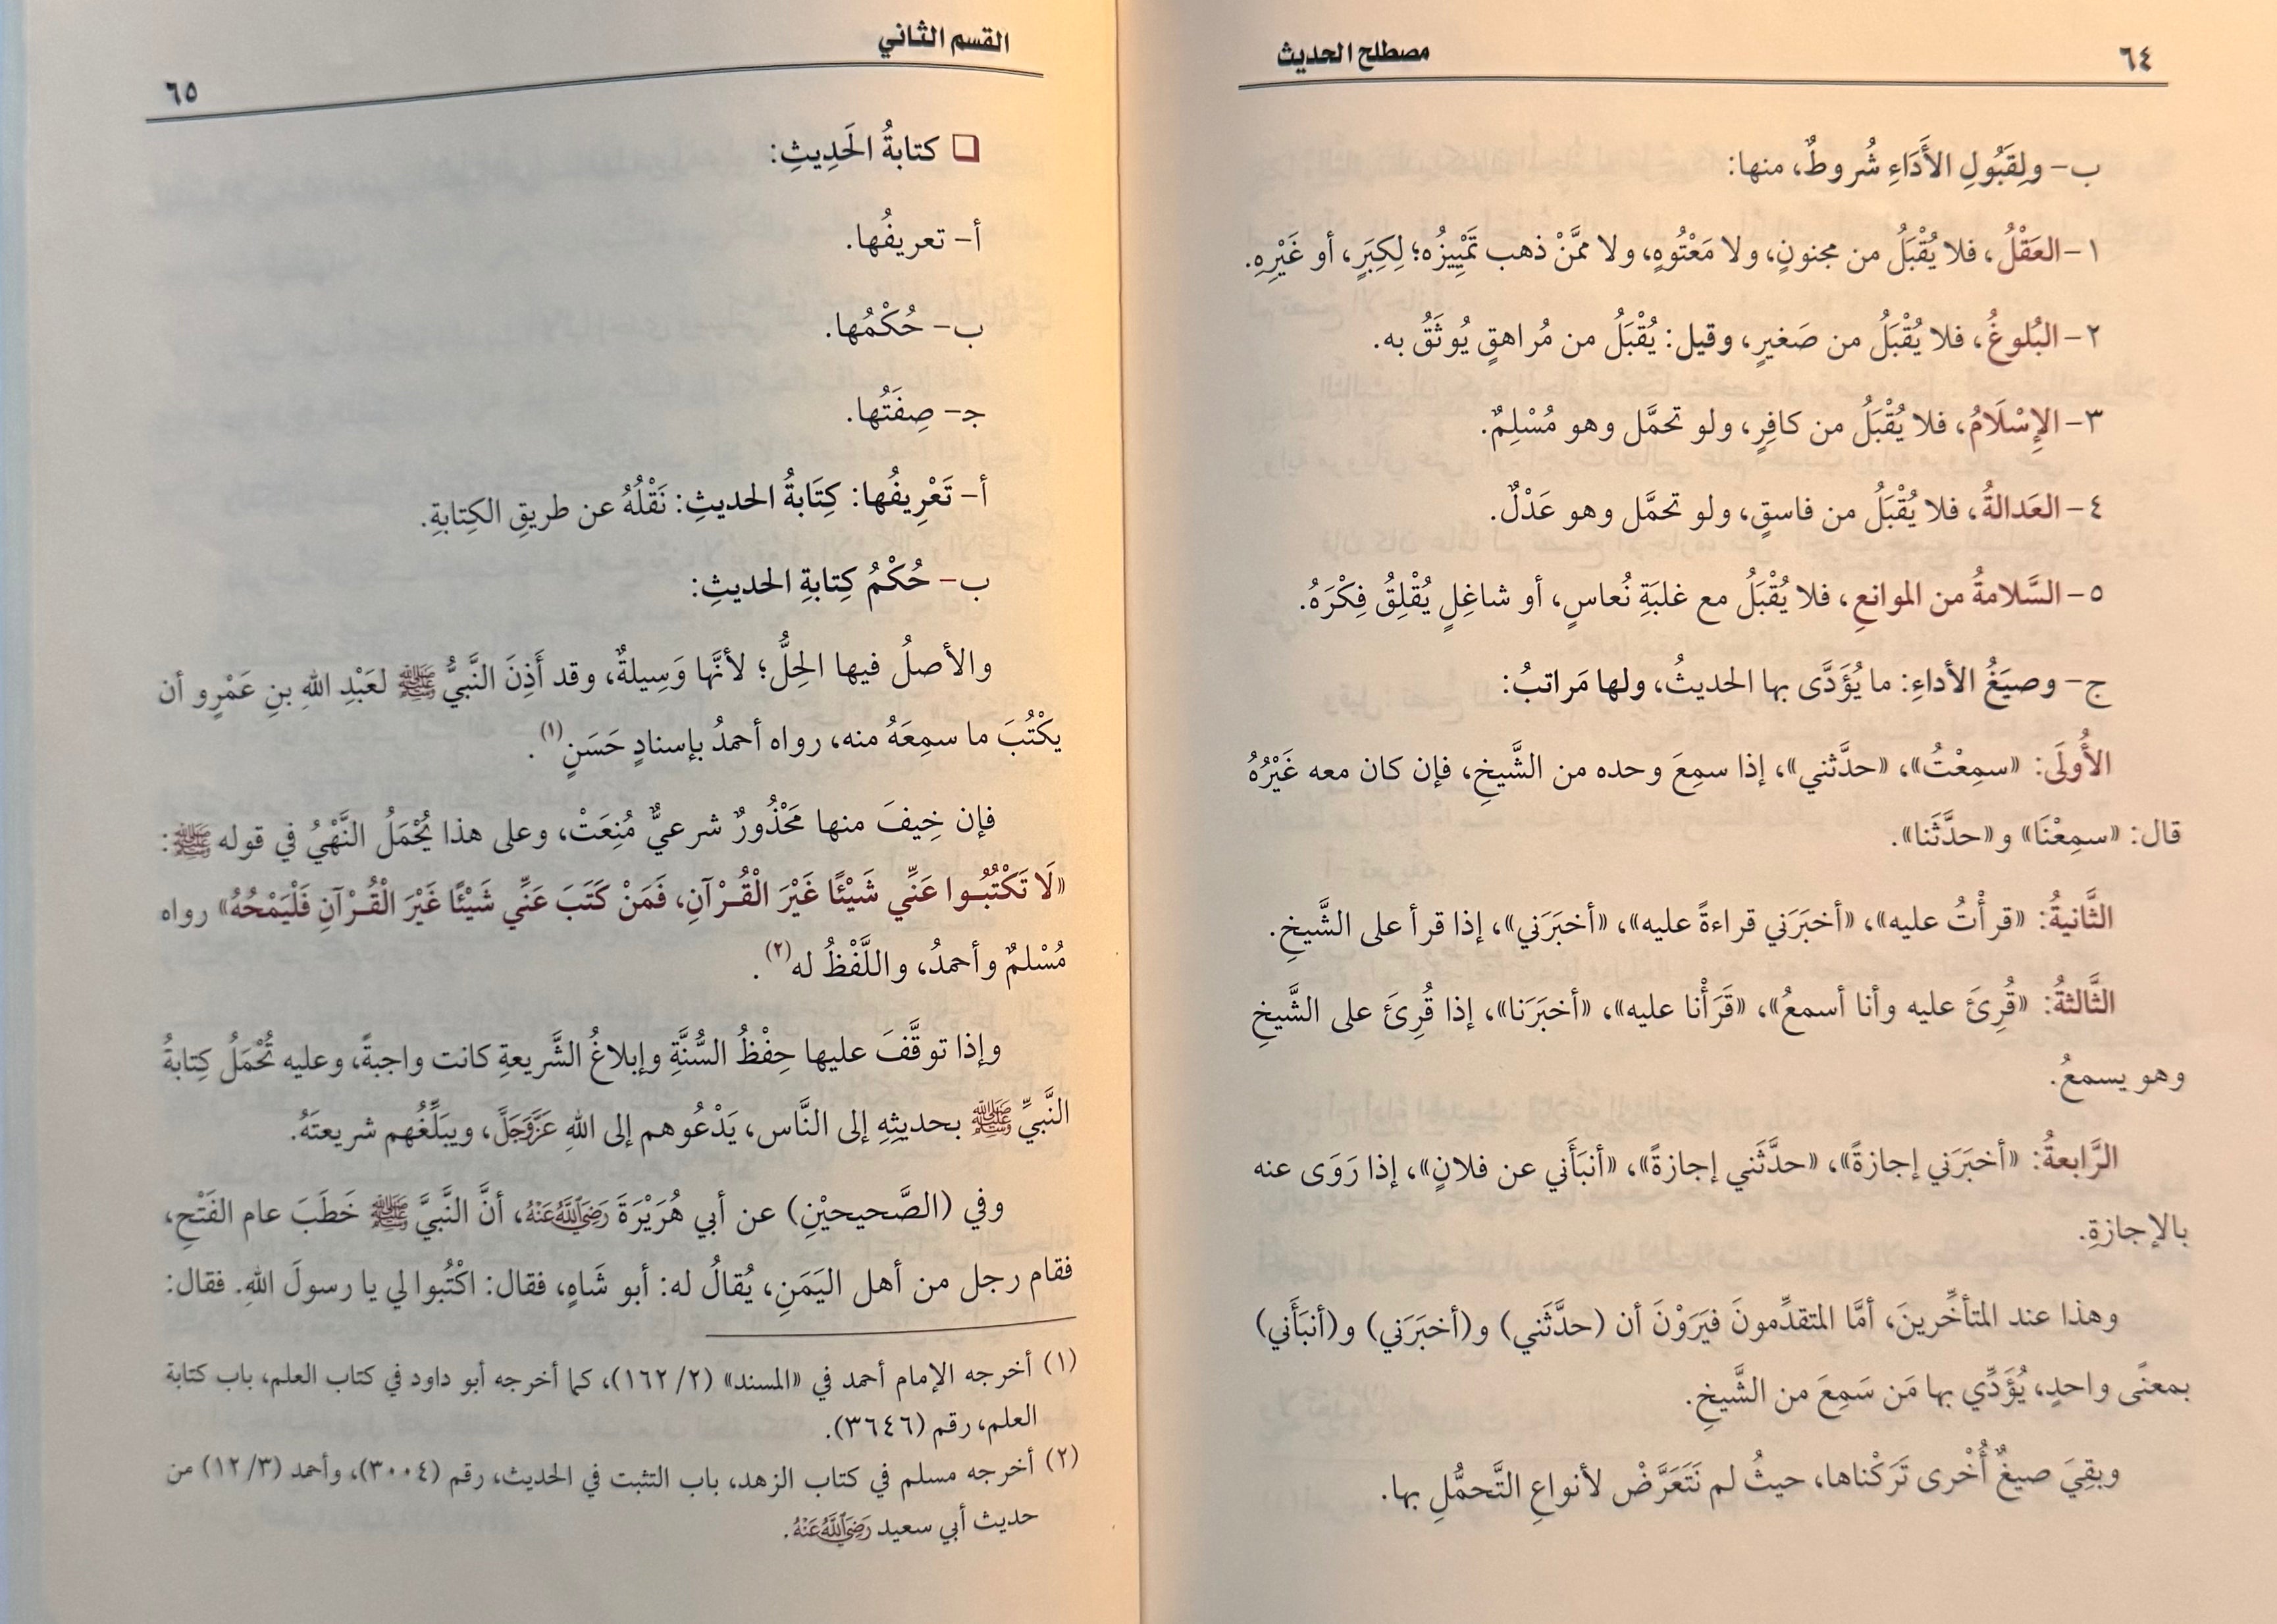 ٦٤
مصطلح الحديث
ب- ولِقَبُولِ الأَدَاءِ شُروطٌ، منها:
١- العَقْلُ، فلا يُقْبَلُ من مجنونٍ، ولا مَعْتُوهٍ، ولا ممَّنْ ذهب تَمْيِيزُه؛ لِكِبَرٍ، أو غَيْرِهِ.
٢- البُلوغُ، فلا يُقْبَلُ من صَغيرٍ، وقيل: يُقْبَلُ من مُراهقٍ يُوثَقُ به.
٣- الإِسْلَامُ، فلا يُقْبَلُ من كافِرٍ، ولو تحمَّل وهو مُسْلِمٌ.
٤- العَدالةُ، فلا يُقْبَلُ من فاسقٍ، ولو تحمَّل وهو عَدْلٌ.
٥- السَّلامةُ من الموانعِ، فلا يُقْبَلُ مع غلبَةِ نُعاسٍ، أو شاغِلٍ يُقْلِقُ فِكْرَهُ.
ج- وصيَغُ الأداءِ: ما يُؤَدَّى بها الحديثُ، ولها مَراتبُ:
الأُولَى: «سمِعْتُ»، «حدَّثني»، إذا سمِعَ وحده من الشَّيخِ، فإن كان معه غَيْرُهُ
قال: «سمِعْنَا» و«حدَّثَنا».
الثَّانيةُ: «قرأْتُ عليه»، «أخبَرَني قراءةً عليه»، «أخبَرَني»، إذا قرأ على الشَّيخِ.
الثَّالثةُ: «قُرِئَ عليه وأنا أسمعُ»، «قَرَأْنا عليه»، «أخبَرَنا»، إذا قُرِئَ على الشَّيخِ
وهو يسمعُ.
الرَّابعةُ: «أخبَرَني إجازةً»، «حدَّثَني إجازةً»، «أنبَأَني عن فلانٍ»، إذا رَوَى عنه
بالإجازةِ.
وهذا عند المتأخِّرينَ، أمَّا المتقدِّمونَ فيَرَوْنَ أن (حدَّثَني) و(أخبَرَني) و(أنبَأَني)
بمعنًى واحدٍ، يُؤَدِّي بها مَن سَمِعَ من الشَّيخِ.
وبقِيَ صيغٌ أُخْرى تَرَكْناها، حيثُ لم نَتَعَرَّضْ لأنواعِ التَّحمُّلِ بها.
القسم الثاني
٦٥
❑ كتابةُ الحَدِيثِ:
أ- تعريفُها.
ب- حُكْمُها.
ج- صِفَتُها.
أ- تَعْرِيفُها: كِتَابةُ الحديثِ: نَقْلُهُ عن طريقِ الكِتابةِ.
ب- حُكْمُ كِتابةِ الحديثِ:
والأصلُ فيها الحِلُّ؛ لأنَّها وَسِيلةٌ، وقد أَذِنَ النَّبيُّ ﷺ لعَبْدِ اللهِ بنِ عَمْرٍو أن
يكْتُبَ ما سمِعَهُ منه، رواه أحمدُ بإسنادٍ حَسَنٍ(١).
فإن خِيفَ منها مَحْذُورٌ شرعيٌّ مُنِعَتْ، وعلى هذا يُحْمَلُ النَّهْيُ في قوله ﷺ:
«لَا تَكْتُبُـوا عَنِّي شَيْئًا غَيْرَ الْقُـرْآنِ، فَمَنْ كَتَبَ عَنِّي شَيْئًا غَيْرَ الْقُـرْآنِ فَلْيَمْحُهُ» رواه
مُسْلمٌ وأحمدُ، واللَّفْظُ له(٢).
وإذا توقَّفَ عليها حِفْظُ السُّنَّةِ وإبلاغُ الشَّريعةِ كانت واجبةً، وعليه تُحْمَلُ كِتابةُ
النَّبيِّ ﷺ بحديثِهِ إلى النَّاس، يَدْعُوهم إلى اللهِ عَزَّوَجَلَّ، ويبَلِّغُهم شريعتَهُ.
وفي (الصَّحيحيْنِ) عن أبي هُرَيْرَةَ رَضِيَ اللَّهُ عَنْهُ، أنَّ النَّبيَّ ﷺ خَطَبَ عام الفَتْحِ،
فقام رجل من أهل اليَمَنِ، يُقالُ له: أبو شَاهٍ، فقال: اكْتُبوا لي يا رسولَ اللهِ. فقال:
(١) أخرجه الإمام أحمد في «المسند» (٢/ ١٦٢)، كما أخرجه أبو داود في كتاب العلم، باب كتابة
العلم، رقم (٣٦٤٦).
(٢) أخرجه مسلم في كتاب الزهد، باب التثبت في الحديث، رقم (٣٠٠٤)، وأحمد (٣/ ١٢) من
حديث أبي سعيد رَضِيَ اللَّهُ عَنْهُ.